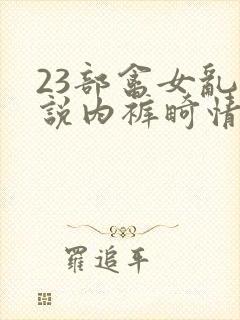 23部畜女亂
説内裤畸情
羅追平